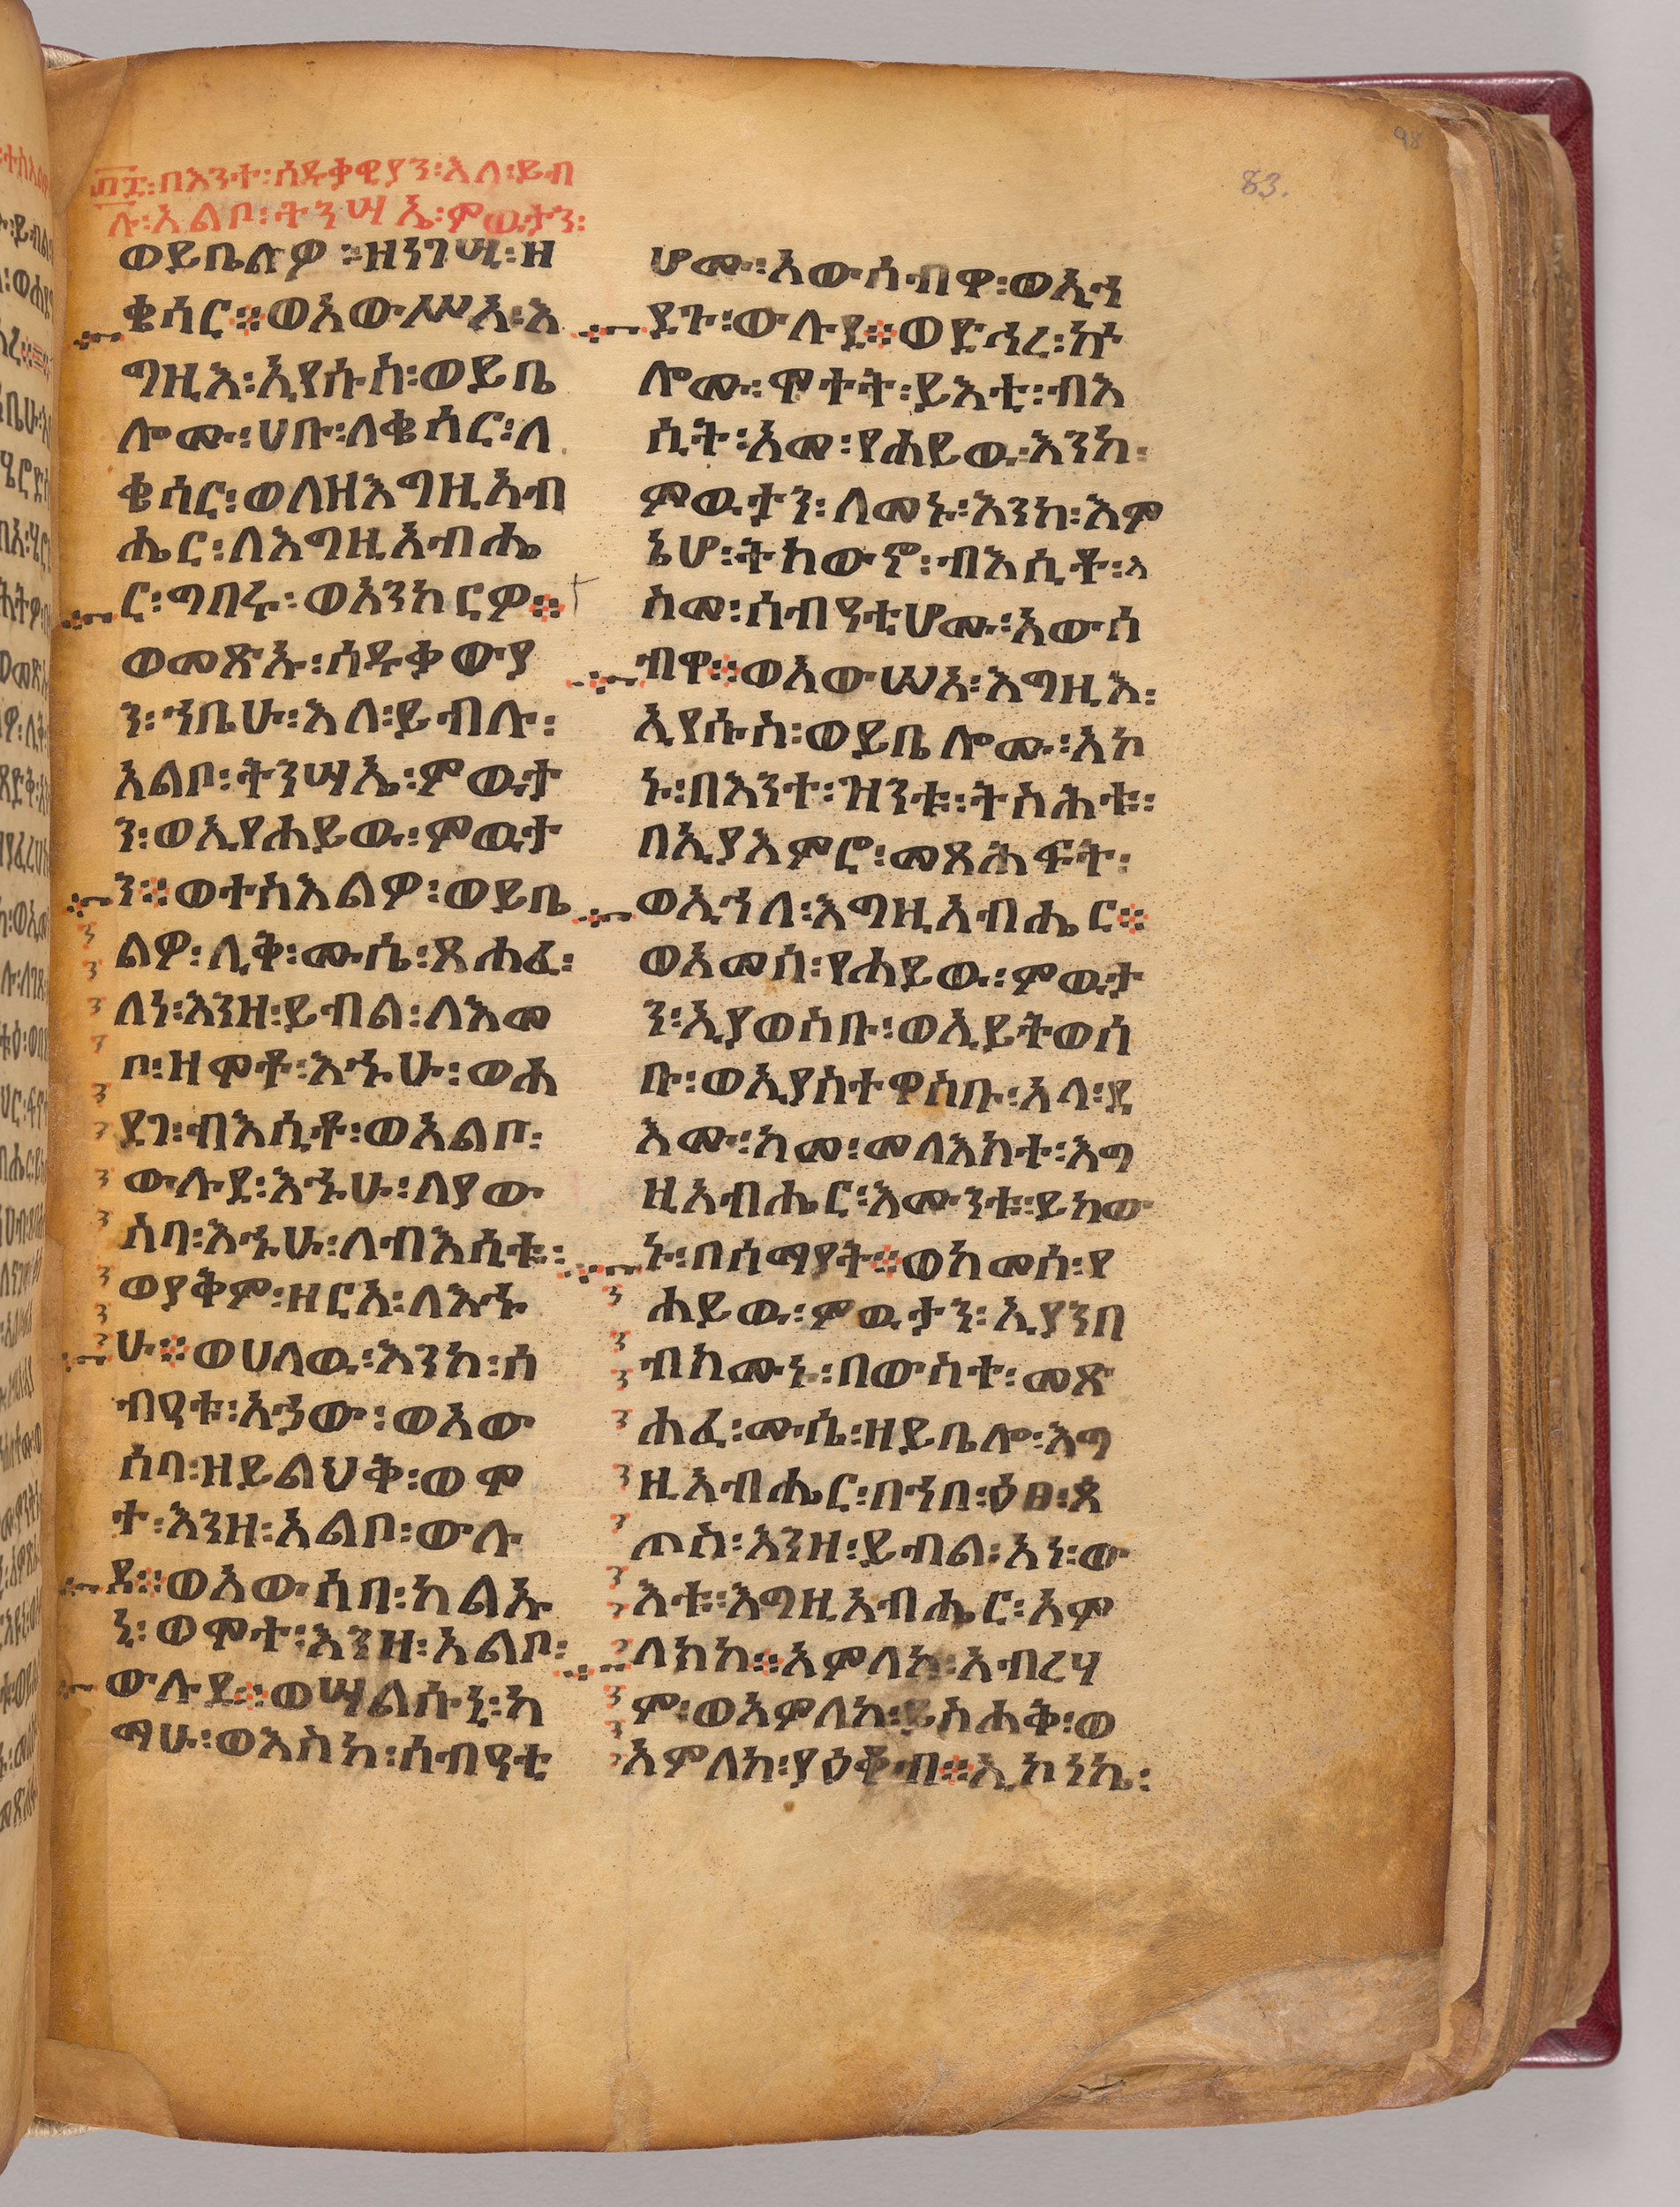 ፵፯፡በእንተ፡ሰዱቃዊያን፡እለ፡ይብ
ሉ፡አልቦ፡ትንሣኤ፡ምዉታን፡
98
83.
ወይቤልዎ፡ዘንጉሢ፡ዘ
ቄሳር፨ወአውሥአ፡እ
ግዚእ፡ኢየሱስ፡ወይቤ
ሎሙ፡ሀቡ፡ለቄሳር፡ለ
ቄሳር፡ወለዘእግዚአብ
ሔር፡ለእግዚአብሔ
ር፡ግበሩ፡ወአንከርዎ፨
ወመጽኡ፡ሰዱቃውያ
ን፡ኀቤሁ፡እለ፡ይብሉ፡
አልቦ፡ትንሣኤ፡ምዉታ
ን፡ወኢየሐይዉ፡ምዉታ
ን፨ወተስእልዎ፡ወይቤ
ልዎ፡ሊቅ፡ሙሴ፡ጸሐፈ፡
ለነ፡እንዘ፡ይብል፡ለእመ
ቦ፡ዘሞቶ፡እኁሁ፡ወሐ
ደገ፡ብእሲቶ፡ወአልቦ፡
ውሉደ፡እኁሁ፡ለያው
ስባ፡እኁሁ፡ለብእሲቱ፡
ወያቅም፡ዘርአ፡ለእኁ
ሁ፨ወሀለዉ፡እንከ፡ሰ
ብዓቱ፡አኃው፡ወአው
ሰባ፡ዘይልህቅ፡ወሞ
ተ፡እንዘ፡አልቦ፡ውሉ
ደ፨ወአውሰበ፡ካልኡ
ኒ፡ወሞተ፡እንዘ፡አልቦ፡
ውሉደ፨ወሣልሱኒ፡ከ
ማሁ፡ወእስከ፡ሰብዓቲ
ሆሙ፡አውሰብዋ፡ወኢኀ
ደጉ፡ውሉደ፨ወድኅረ፡ኵ
ሎሙ፡ሞተት፡ይእቲ፡ብእ
ሲት፡አመ፡የሐይዉ፡እንከ፡
ምዉታን፡ለመኑ፡እንከ፡እም
ኔሆ፡ትከውኖ፡ብእሲቶ፡እ
ስመ፡ሰብዓቲሆሙ፡አውሰ
ብዋ፨ወአውሥአ፡እግዚእ፡
ኢየሱስ፡ወይቤሎሙ፡አኮ
ኑ፡በእንተ፡ዝንቱ፡ትስሕቱ፡
በኢያእምሮ፡መጻሕፍት፡
ወኢኀለ፡እግዚአብሔር፨
ወአመሰ፡የሐይዉ፡ምዉታ
ን፡ኢያወስቡ፡ወኢይትወሰ
ቡ፡ወኢያስተዋስቡ፡አላ፡ዳ
እሙ፡ከመ፡መላእክተ፡እግ
ዚአብሔር፡እሙንቱ፡ይከው
ኑ፡በሰማያት፨ወከመሰ፡የ
ሐይዉ፡ምዉታን፡ኢያንበ
ብክሙኑ፡በውስተ፡መጽ
ሐፈ፡ሙሴ፡ዘይቤሎ፡እግ
ዚአብሔር፡በኀበ፡ዕፀ፡ጳ
ጦስ፡እንዘ፡ይብል፡አነ፡ው
እቱ፡እግዚአብሔር፡አም
ላክከ፨አምላከ፡አብረሃ
ም፡ወአምላከ፡ይስሐቅ፡ወ
አምላከ፡ያዕቆብ፨ኢኮነኬ፡